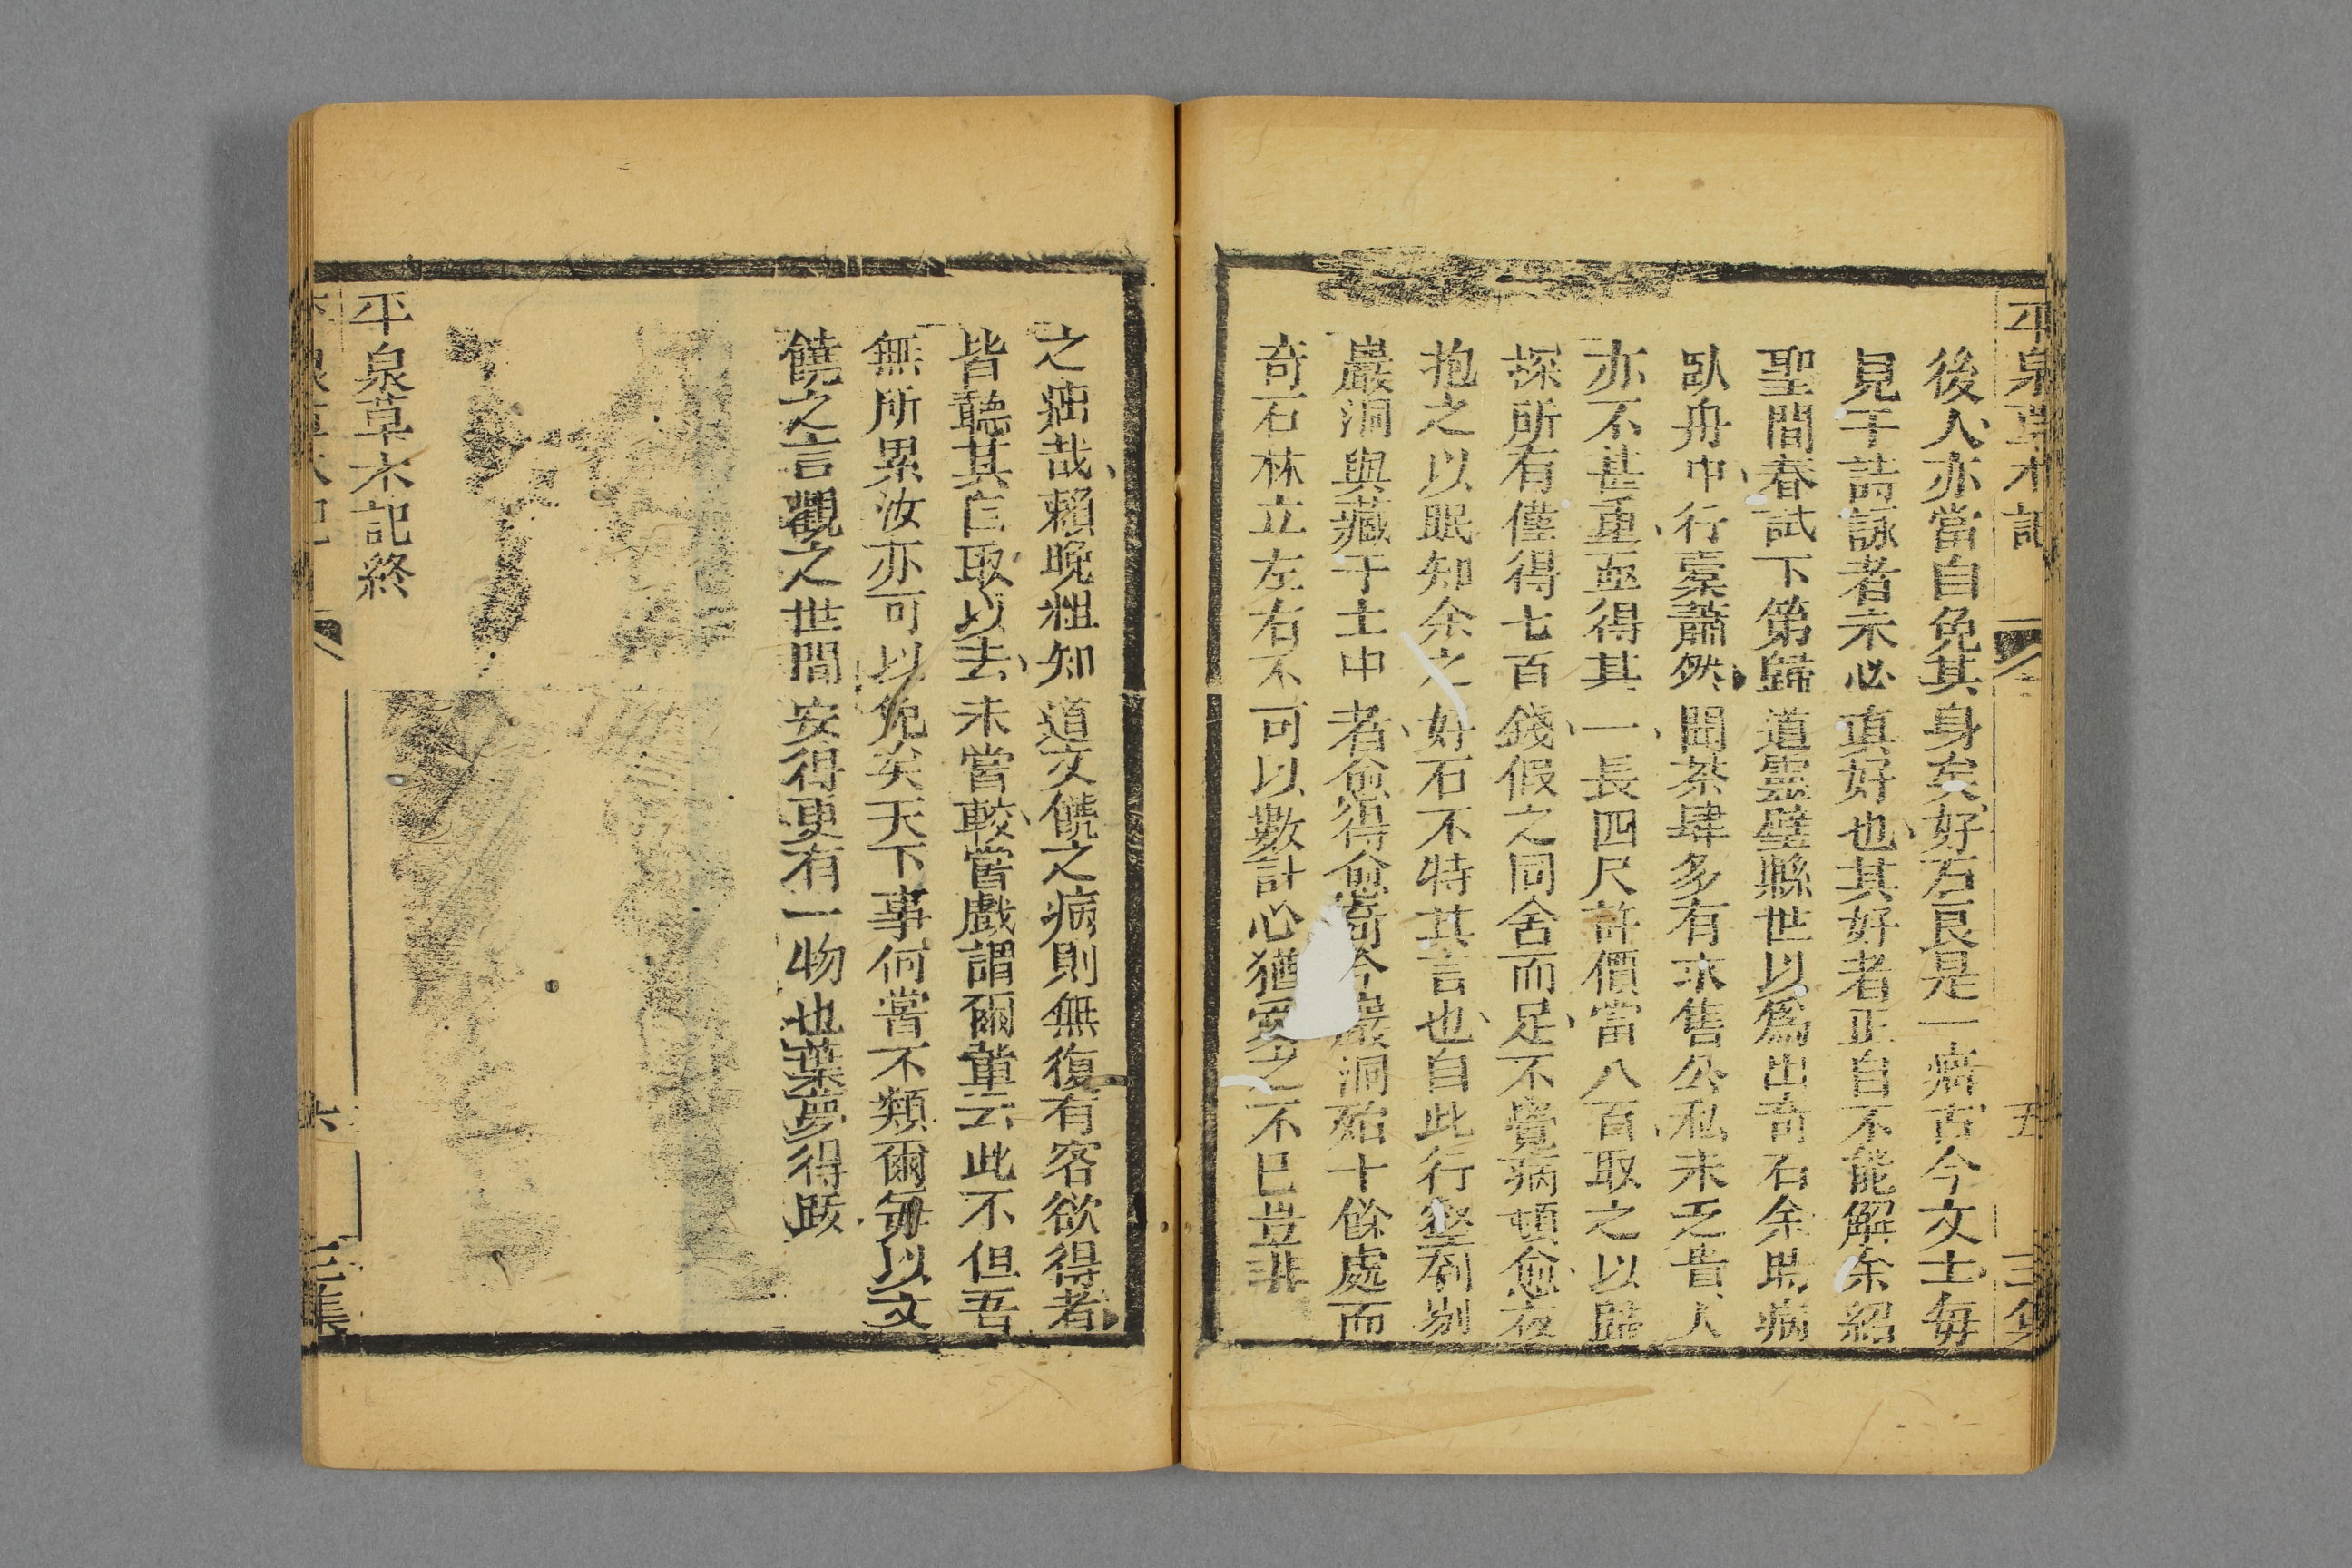 平泉草木記 五 三集
後人亦當自免其身矣好石良是一癖古今文士每
見于詩詠者未必真好也其好者正自不能解余紹
聖間春試下第歸道靈璧縣世以為出奇石余時病
臥舟中行橐蕭然聞茶肆多有求售公私未乏貴人
亦不甚重亟得其一長四尺許價當八百取之以歸
探所有僅得七百錢假之同舍而足不覺病頓愈夜
抱之以眠知余之好石不特其言也自此行壑刳剔
巖洞與藏于土中者愈得愈奇今巖洞殆十餘處而
奇石林立左右不可以數計心猶愛之不已豈非
之痼哉賴晚粗知道文饒之病則無復有客欲得者
皆聽其自取以去未嘗較嘗戲謂爾輩云此不但吾
無所累汝亦可以免矣天下事何嘗不類爾每以文
饒之言觀之世間安得更有一物也葉夢得跋
平泉草木記終
六 三集